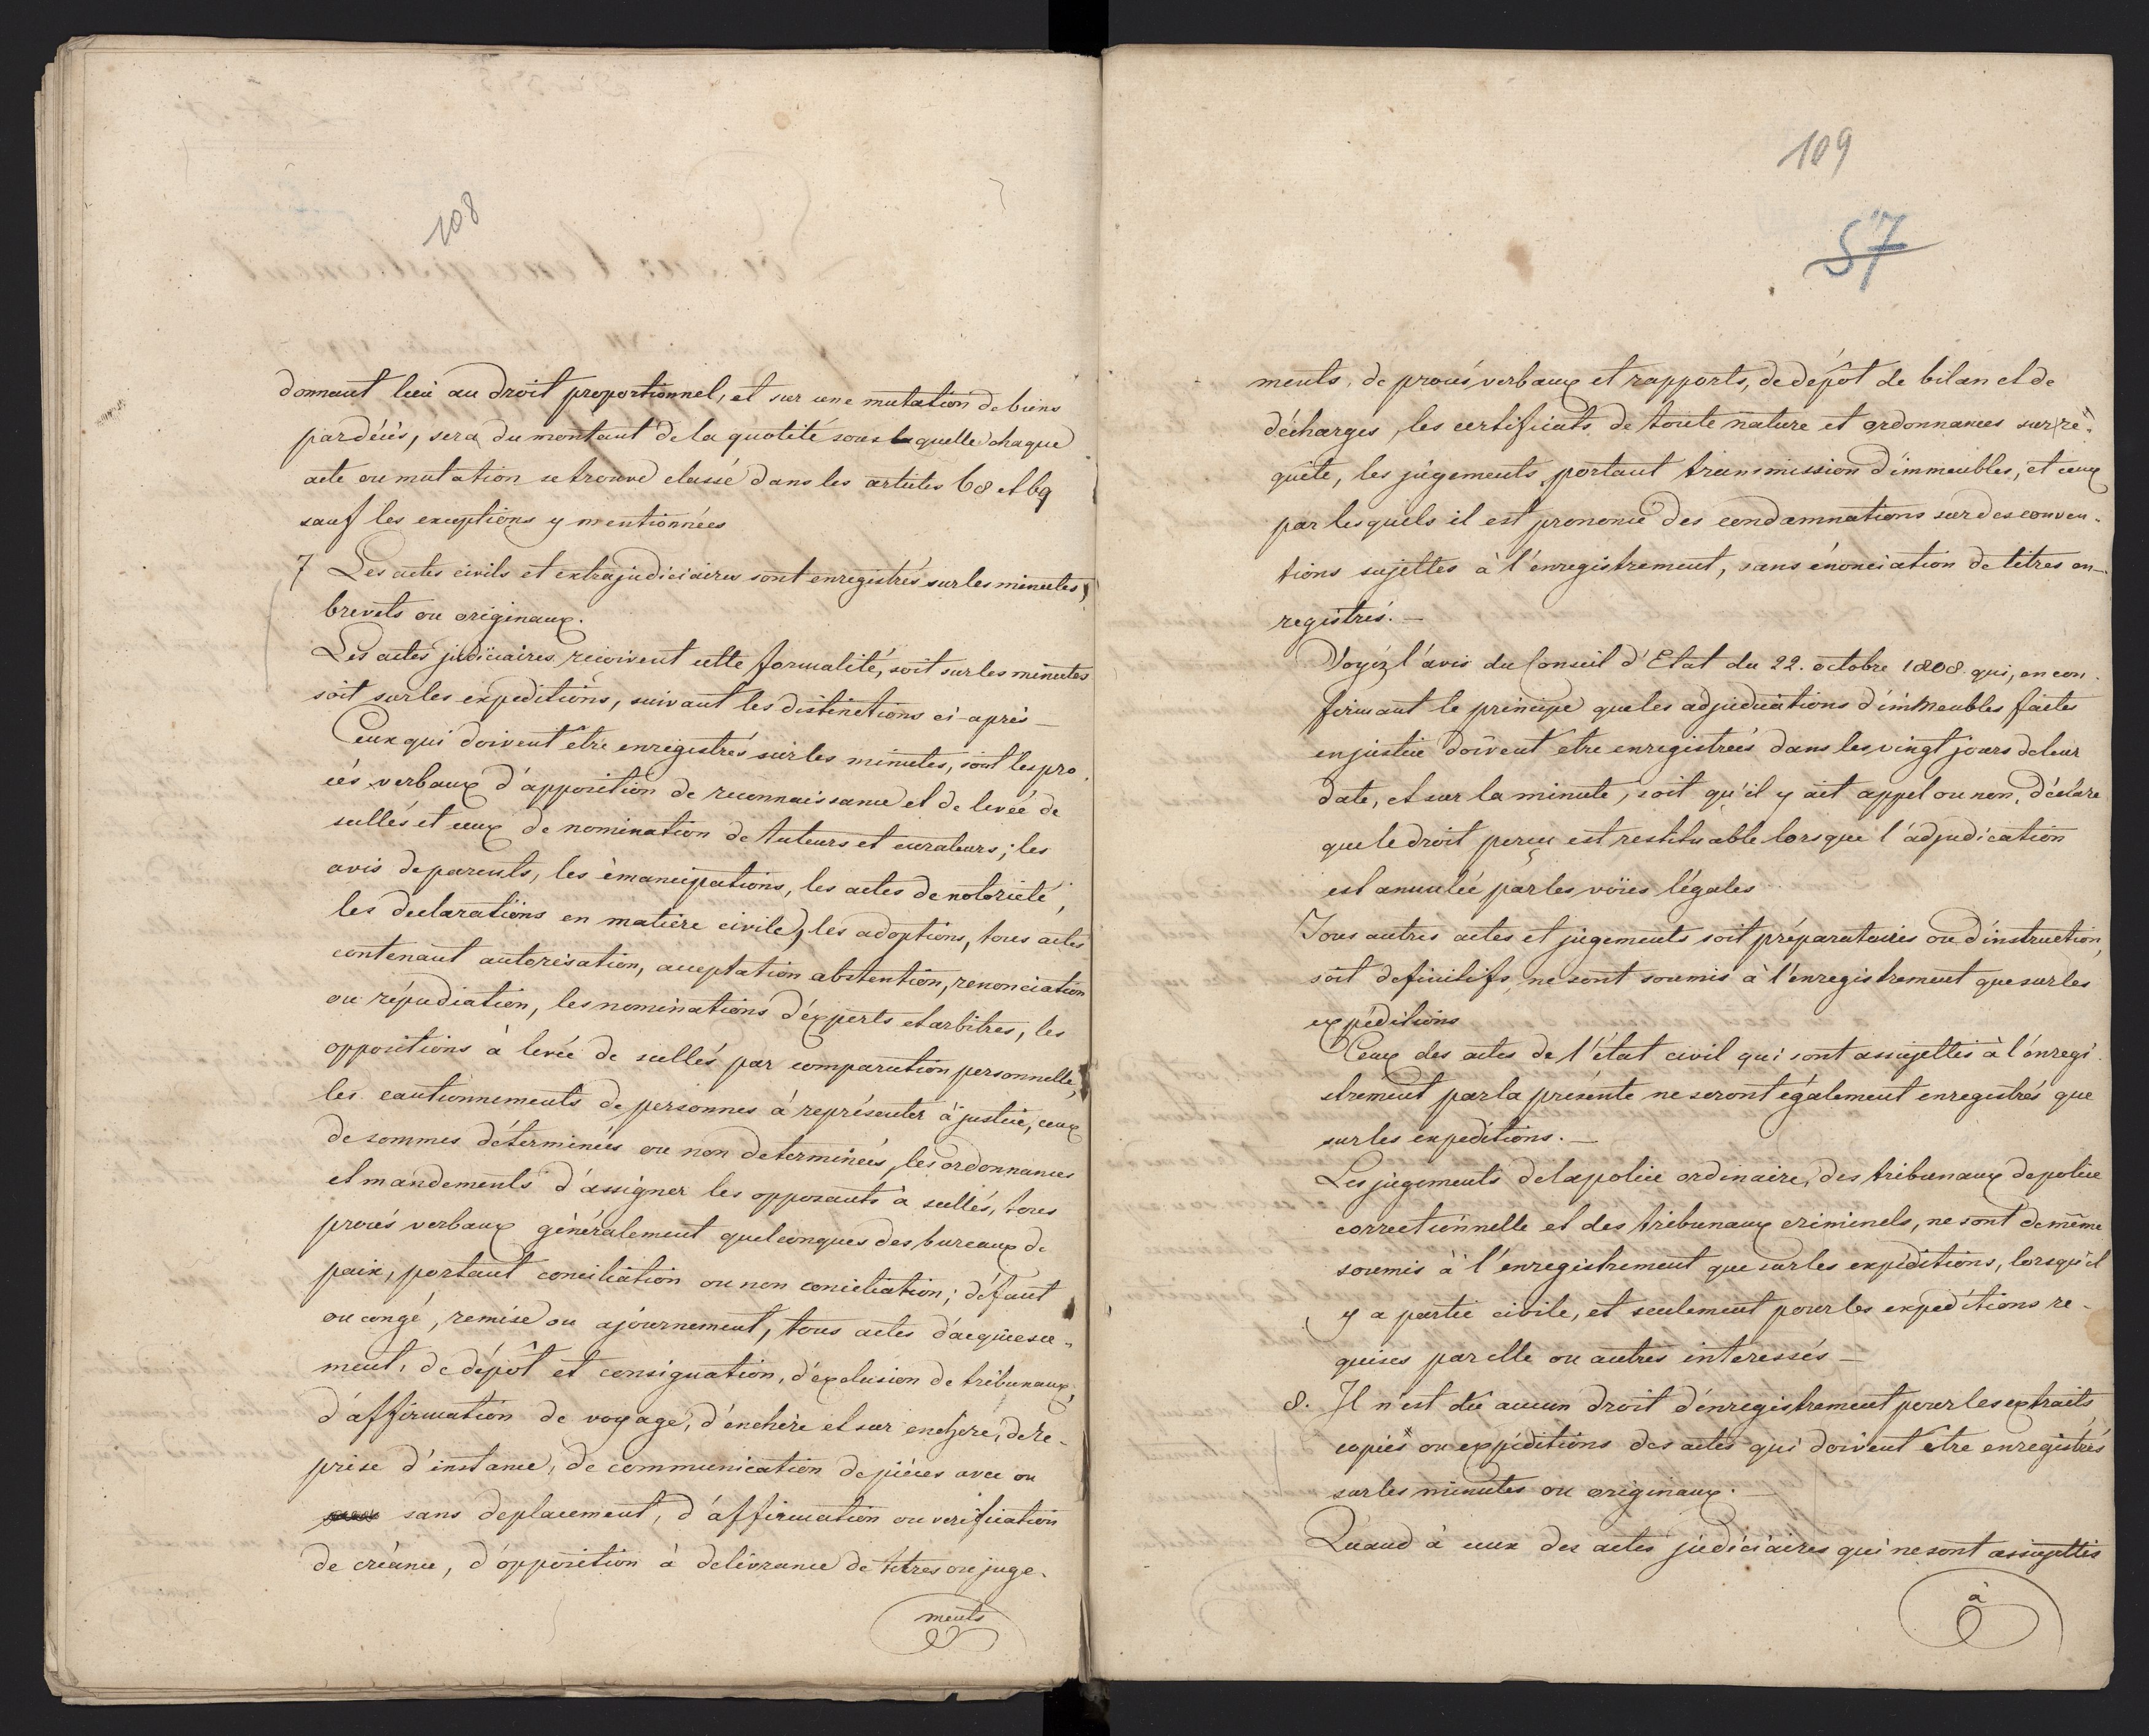 108
donnant lieu au droit proportionnel, et sur une mutation de biens
par décès, sera du montant de la quotité sous laquelle chaque
acte ou mutation se trouve classé dans les articles 68 et 69
sauf les exceptions y mentionnées
7 Les actes civils et extrajudiciaires sont enregistrés sur les minutes,
brevets ou originaux.
Les actes judiciaires reçoivent cette formalité, soit sur les minutes
soit sur les expeditions, suivant les distinctions ci-après —
Ceux qui doivent être enregistrés sur les minutes, sont les pro
cés verbaux d'apposition de reconnaissance et de levée de
scellés et ceux de nomination de tuteurs et curateurs; les
avis de parents, les émancipations, les actes de notoriété,
les declarations en matière civile, les adoptions, tous actes
contenant autorisation, acceptation abstention, renonciation
ou répudiation, les nominations d'experts et arbitres, les
oppositions à levée de scellés par comparution personnelle,
les cautionnements de personnes à représenter à justice, ceux
de sommes déterminées ou non determinées, les ordonnances
et mandements d'assigner les opposants à scellés, tous
procés verbaux généralement quelconques des bureaux de
paix, portant conciliation ou non conciliation; défaut
ou congé, remise ou ajournement, tous actes d'acquiesce-
ment, de dépôt et consignation, d'exclusion de tribunaux,
d'affirmation de voyage, d'enchère et sur enchere, de re-
prise d'instance, de communication de pièces avec ou
sans deplacement, d'affirmation ou verification
de créance, d'opposition à delivrance de titres ou juge-
ments
109
57
ments, de procés verbaux et rapports, de dépôt de bilan et de
décharges, les certificats de toute nature et ordonnances sur re-
quête, les jugements portant transmission d'immeubles, et ceux
par lesquels il est prononcé des condamnations sur des conven-
tions sujettes à l'enregistrement, sans énonciation de titres en-
registrés. —
Voyéz l'avis du Conseil d'Etat du 22. octobre 1808. qui, en con-
firmant le principe que les adjudications d'immeubles faites
en justice doivent etre enregistrées dans les vingt jours de leur
date, et sur la minute, soit qu'il y ait appel ou non, déclare
que le droit perçu est restituable lorsque l'adjudication
est annulée par les voies légales
Tous autres actes et jugements soit préparatoires ou d'instruction,
soit definitifs, ne sont soumis à l'enregistrement que sur les
expéditions
Ceux des actes de l'état civil qui sont assujettis à l'enregi-
strement par la présente ne seront également enregistrés que
sur les expeditions. —
Les jugements de la police ordinaire, des tribunaux de police
correctionnelle et des tribunaux criminels, ne sont de même
soumis à l'enregistrement que sur les expéditions, lorsqu'il
y a partie civile, et seulement pour les expeditions re-
quises par elle ou autres interessés —
8. Il n'est dû aucun droit d'enregistrement pour les extraits
copies ou expéditions des actes qui doivent être enregistrés
sur les minutes ou originaux. —
Quand à ceux des actes judiciaires qui ne sont assujettis
à